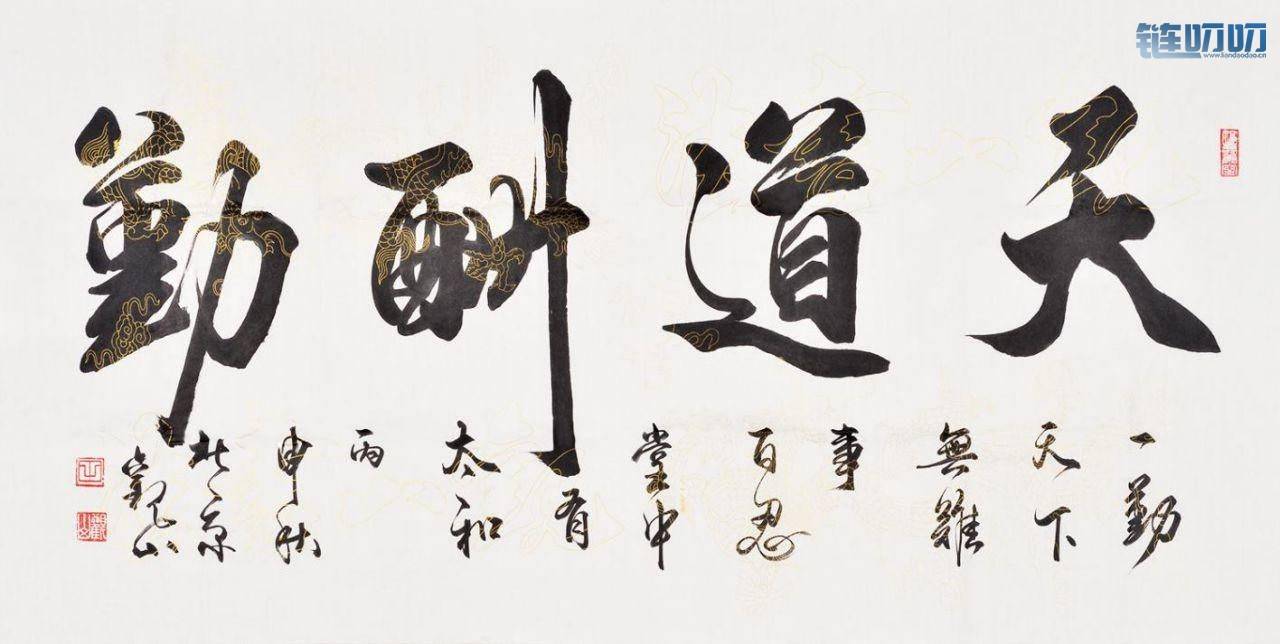 链叨叨
www.liandaodao.cn
天道酬勤
一勤
天下
無難
事
百忍
堂中
有
太和
丙
申秋
北京
觀山